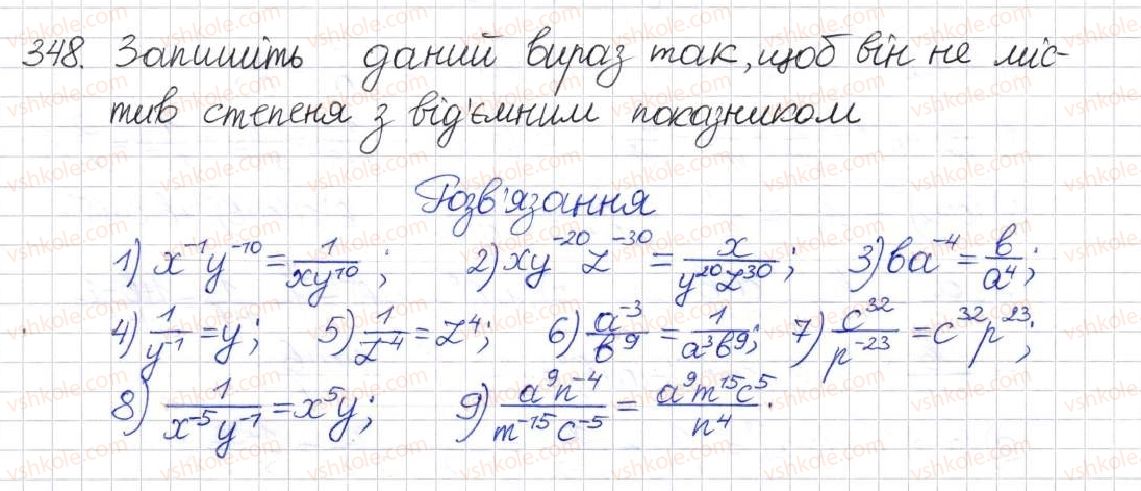 348. Запишіть даний вираз так, щоб він не міс-
тив степеня з від'ємним показником
Розв'язання
1) x⁻¹y⁻¹⁰ = 1/(xy¹⁰); 2) xy⁻²⁰z⁻³⁰ = x/(y²⁰z³⁰); 3) ba⁻⁴ = b/a⁴;
4) 1/y⁻¹ = y; 5) 1/z⁻⁴ = z⁴; 6) a⁻³/b⁹ = 1/(a³b⁹); 7) c³²/p⁻²³ = c³²p²³;
8) 1/(x⁻⁵y⁻¹) = x⁵y; 9) a⁹n⁻⁴/(m⁻¹⁵c⁻⁵) = a⁹m¹⁵c⁵/n⁴.